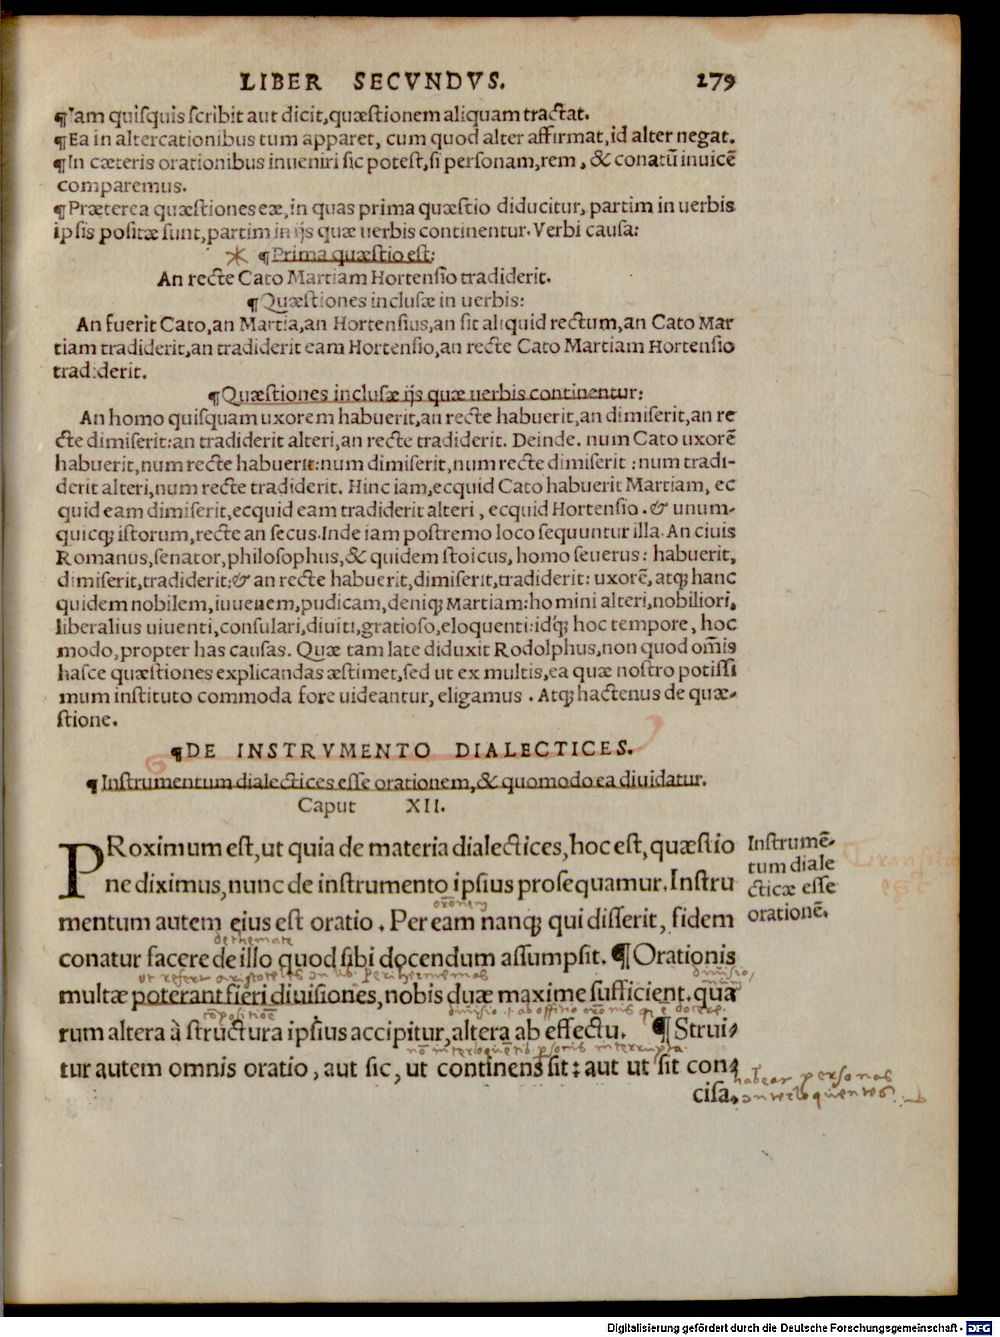 LIBER SECVNDVS. 279
¶Iam quisquis scribit aut dicit,quæstionem aliquam tractat.
¶Ea in altercationibus tum apparet, cum quod alter affirmat,id alter negat.
¶In cæteris orationibus inueniri sic potest,si personam,rem, & conatū inuicē
comparemus.
¶Præterea quæstiones eæ,in quas prima quæstio diducitur, partim in uerbis
ipsis positæ sunt,partim in ijs quæ uerbis continentur. Verbi causa:
¶Prima quæstio est:
An recte Cato Martiam Hortensio tradiderit.
¶Quæstiones inclusæ in uerbis:
An fuerit Cato,an Martia,an Hortensius,an sit aliquid rectum,an Cato Mar
tiam tradiderit,an tradiderit eam Hortensio,an recte Cato Martiam Hortensio
tradiderit.
¶Quæstiones inclusæ ijs quæ uerbis continentur:
An homo quisquam uxorem habuerit,an recte habuerit,an dimiserit,an re
cte dimiserit:an tradiderit alteri,an recte tradiderit. Deinde. num Cato uxorē
habuerit,num recte habuerit:num dimiserit,num recte dimiserit :num tradi-
derit alteri,num recte tradiderit. Hinc iam,ecquid Cato habuerit Martiam, ec
quid eam dimiserit,ecquid eam tradiderit alteri, ecquid Hortensio. & unum-
quicq; istorum,recte an secus.Inde iam postremo loco sequuntur illa. An ciuis
Romanus,senator,philosophus,& quidem stoicus, homo seuerus: habuerit,
dimiserit,tradiderit:& an recte habuerit,dimiserit,tradiderit: uxorē, atq; hanc
quidem nobilem,iuuenem,pudicam,deniq; Martiam:homini alteri,nobiliori,
liberalius uiuenti,consulari,diuiti,gratioso,eloquenti:idq́; hoc tempore, hoc
modo,propter has causas. Quæ tam late diduxit Rodolphus,non quod om̄is
hasce quæstiones explicandas æstimet,sed ut ex multis,ea quæ nostro potissi
mum instituto commoda fore uideantur, eligamus. Atq; hactenus de quæ-
stione.
¶DE INSTRVMENTO DIALECTICES.
¶Instrumentum dialectices esse orationem,& quomodo ea diuidatur.
Caput XII.
PRoximum est,ut quia de materia dialectices,hoc est,quæstio
ne diximus,nunc de instrumento ipsius prosequamur.Instru
Instrumē-
tum diale
cticæ esse
orationē.
mentum autem eius est oratio. Per eam nanq; qui disserit, fidem
de themate
conatur facere de illo quod sibi docendum assumpsit. ¶Orationis
multæ poterant fieri diuisiones,nobis duæ maxime sufficient.qua
rum altera à structura ipsius accipitur,altera ab effectu. ¶Strui-
tur autem omnis oratio, aut sic, ut continens sit: aut ut sit con-
cisa.
personas
Digitalisierung gefördert durch die Deutsche Forschungsgemeinschaft - DFG